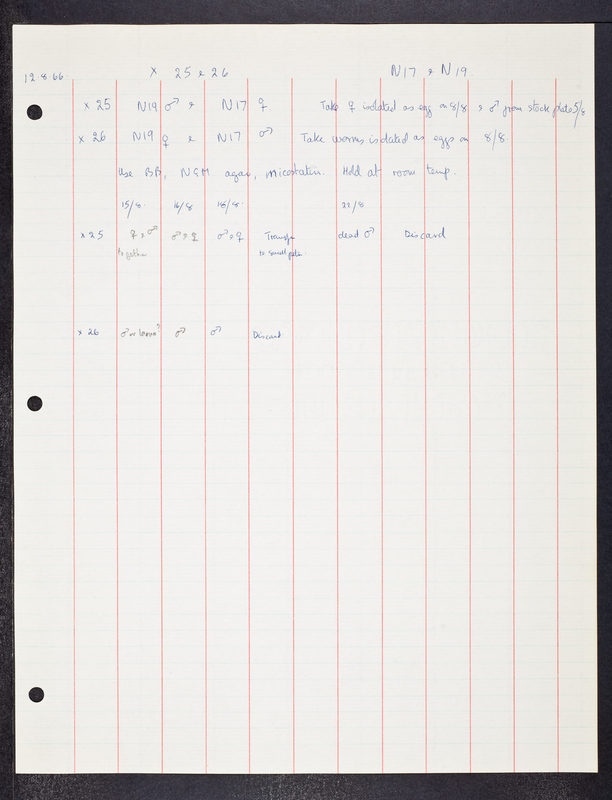 12.8.66. × 25 & 26 N17 & N19.
× 25 N19 ♂ & N17 ♀ Take ♀ isolated as egg on 8/8 & ♂ from stock plate 5/8
× 26 N19 ♀ & N17 ♂ Take worms isolated as eggs on 8/8.
Use BB, NGM agar, micostatin. Hold at room temp.
15/8. 16/8 18/8. 22/8.
× 25 ♀ & ♂ ♂ & ♀ ♂ & ♀ Transfer dead ♂ Discard
together to small plate.
× 26 ♂ or larva? ♂ ♂ Discard